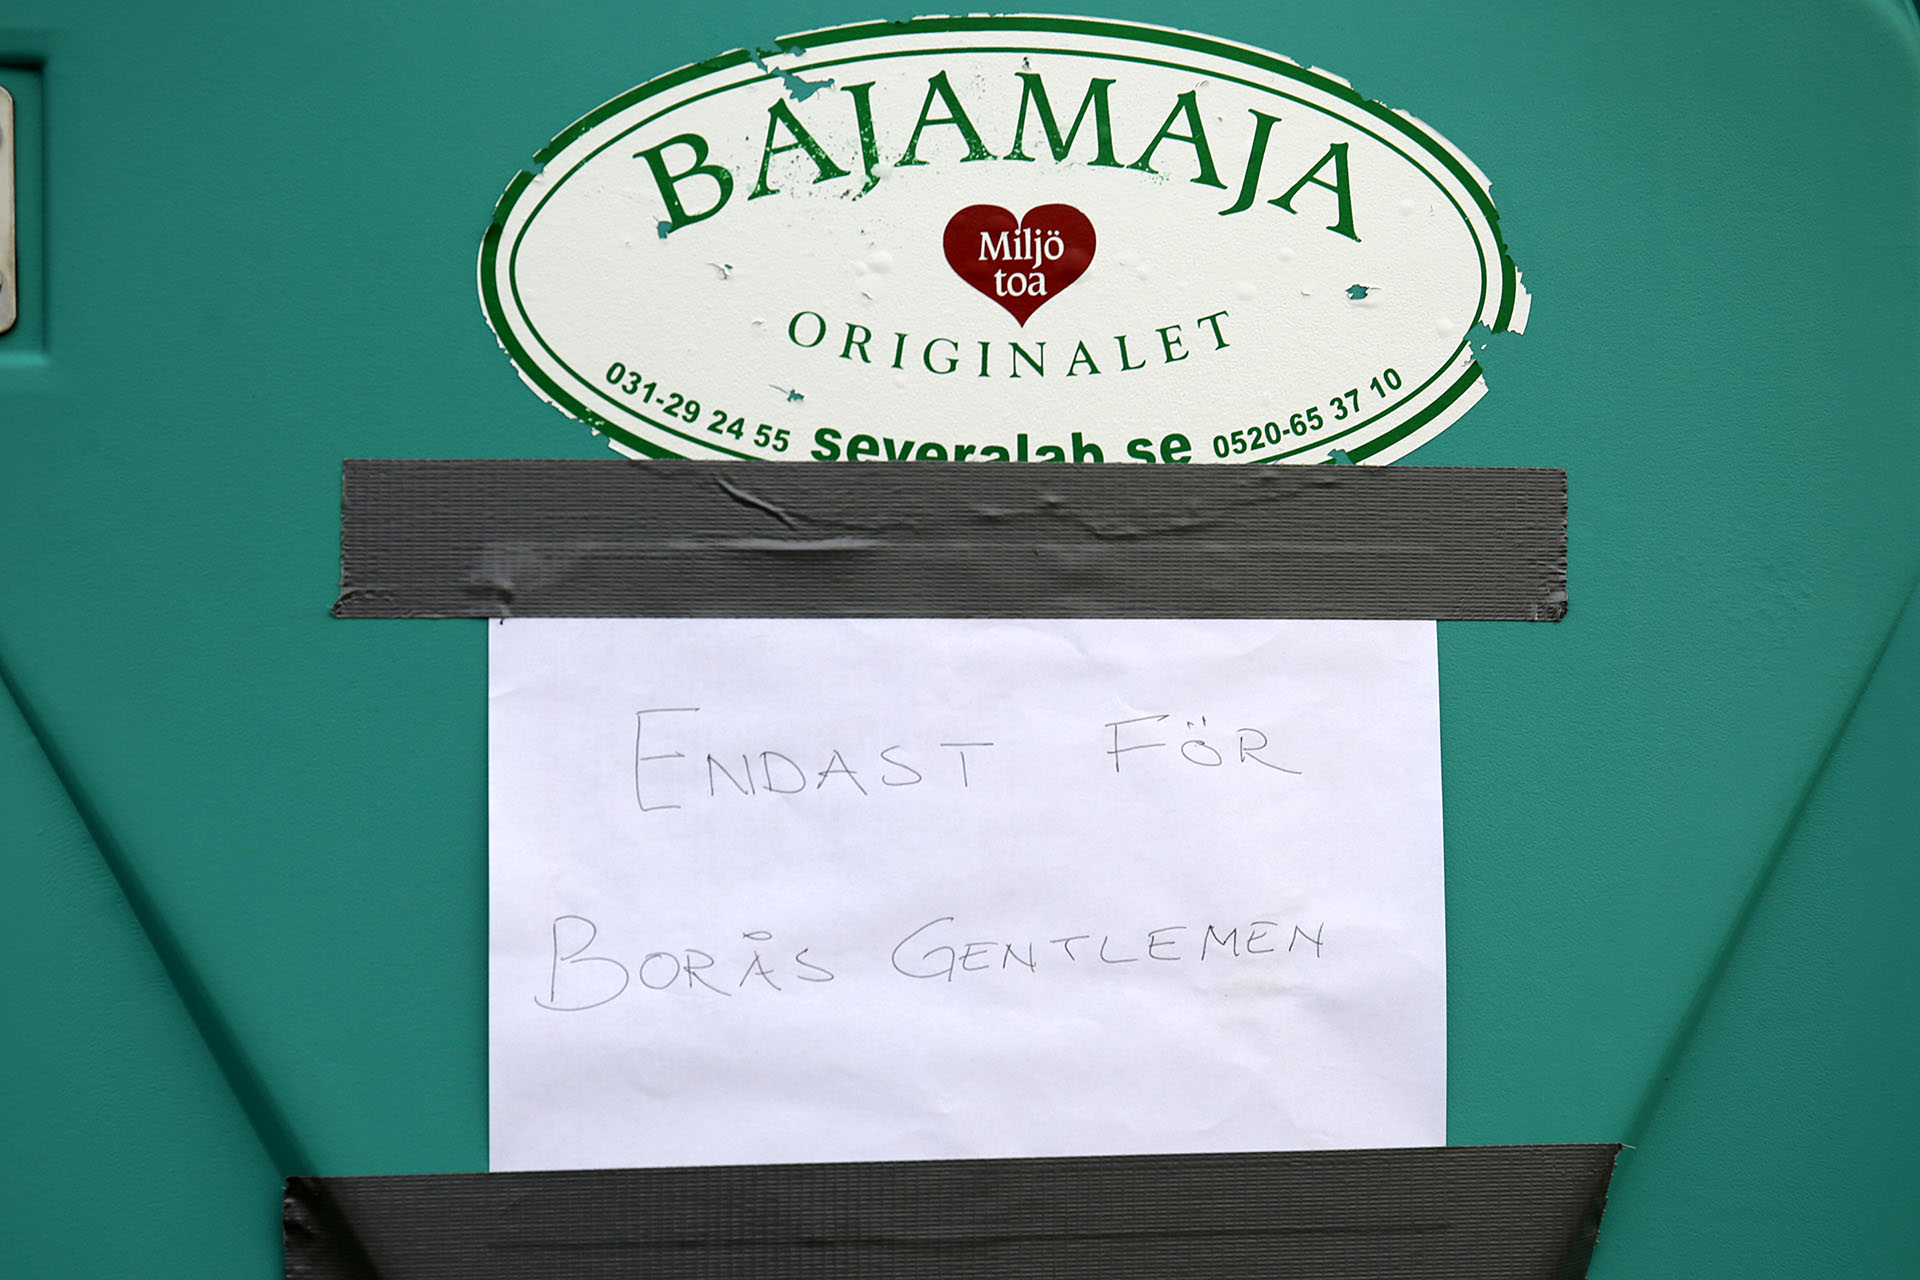 BAJAMAJA
Miljö
toa
ORIGINALET
031-29 24 55 severalab.se 0520-65 37 10
ENDAST FÖR
BORÅS GENTLEMEN